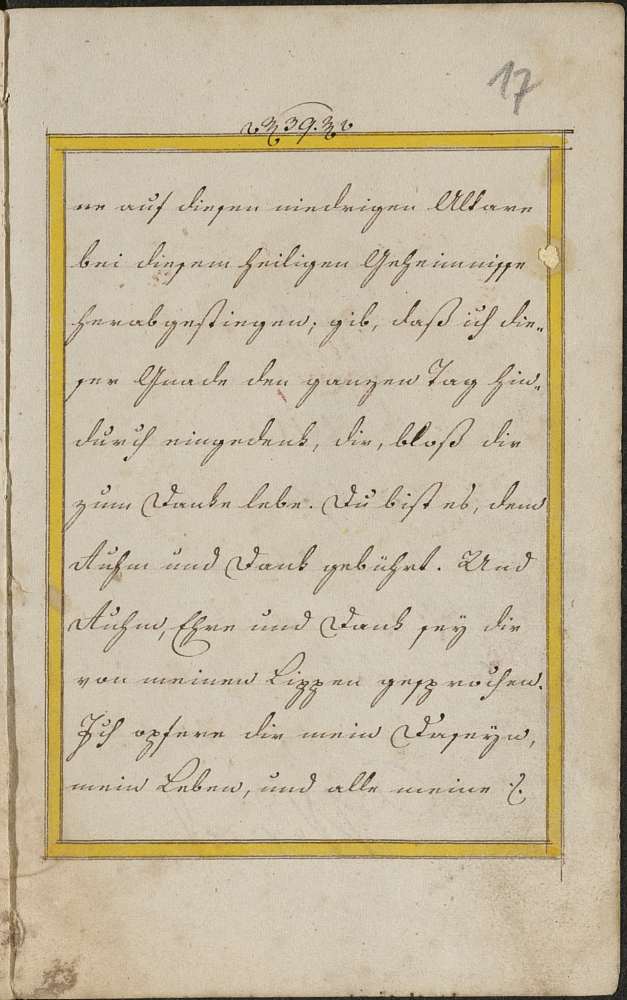 17
39.
re auf diesen niedrigen Altare
bei diesem heiligen Geheimnisse
herabgestiegen; gib, daß ich die„
ser Gnade den ganzen Tag hin„
durch eingedenk, dir, bloß dir
zum Danke lebe. Du bist es, dem
Ruhm und Dank gebührt. Und
Ruhm, Ehre und Dank sey dir
von meinen Lippen gesprochen.
Ich opfere dir mein Daseyn,
mein Leben, und alle meine